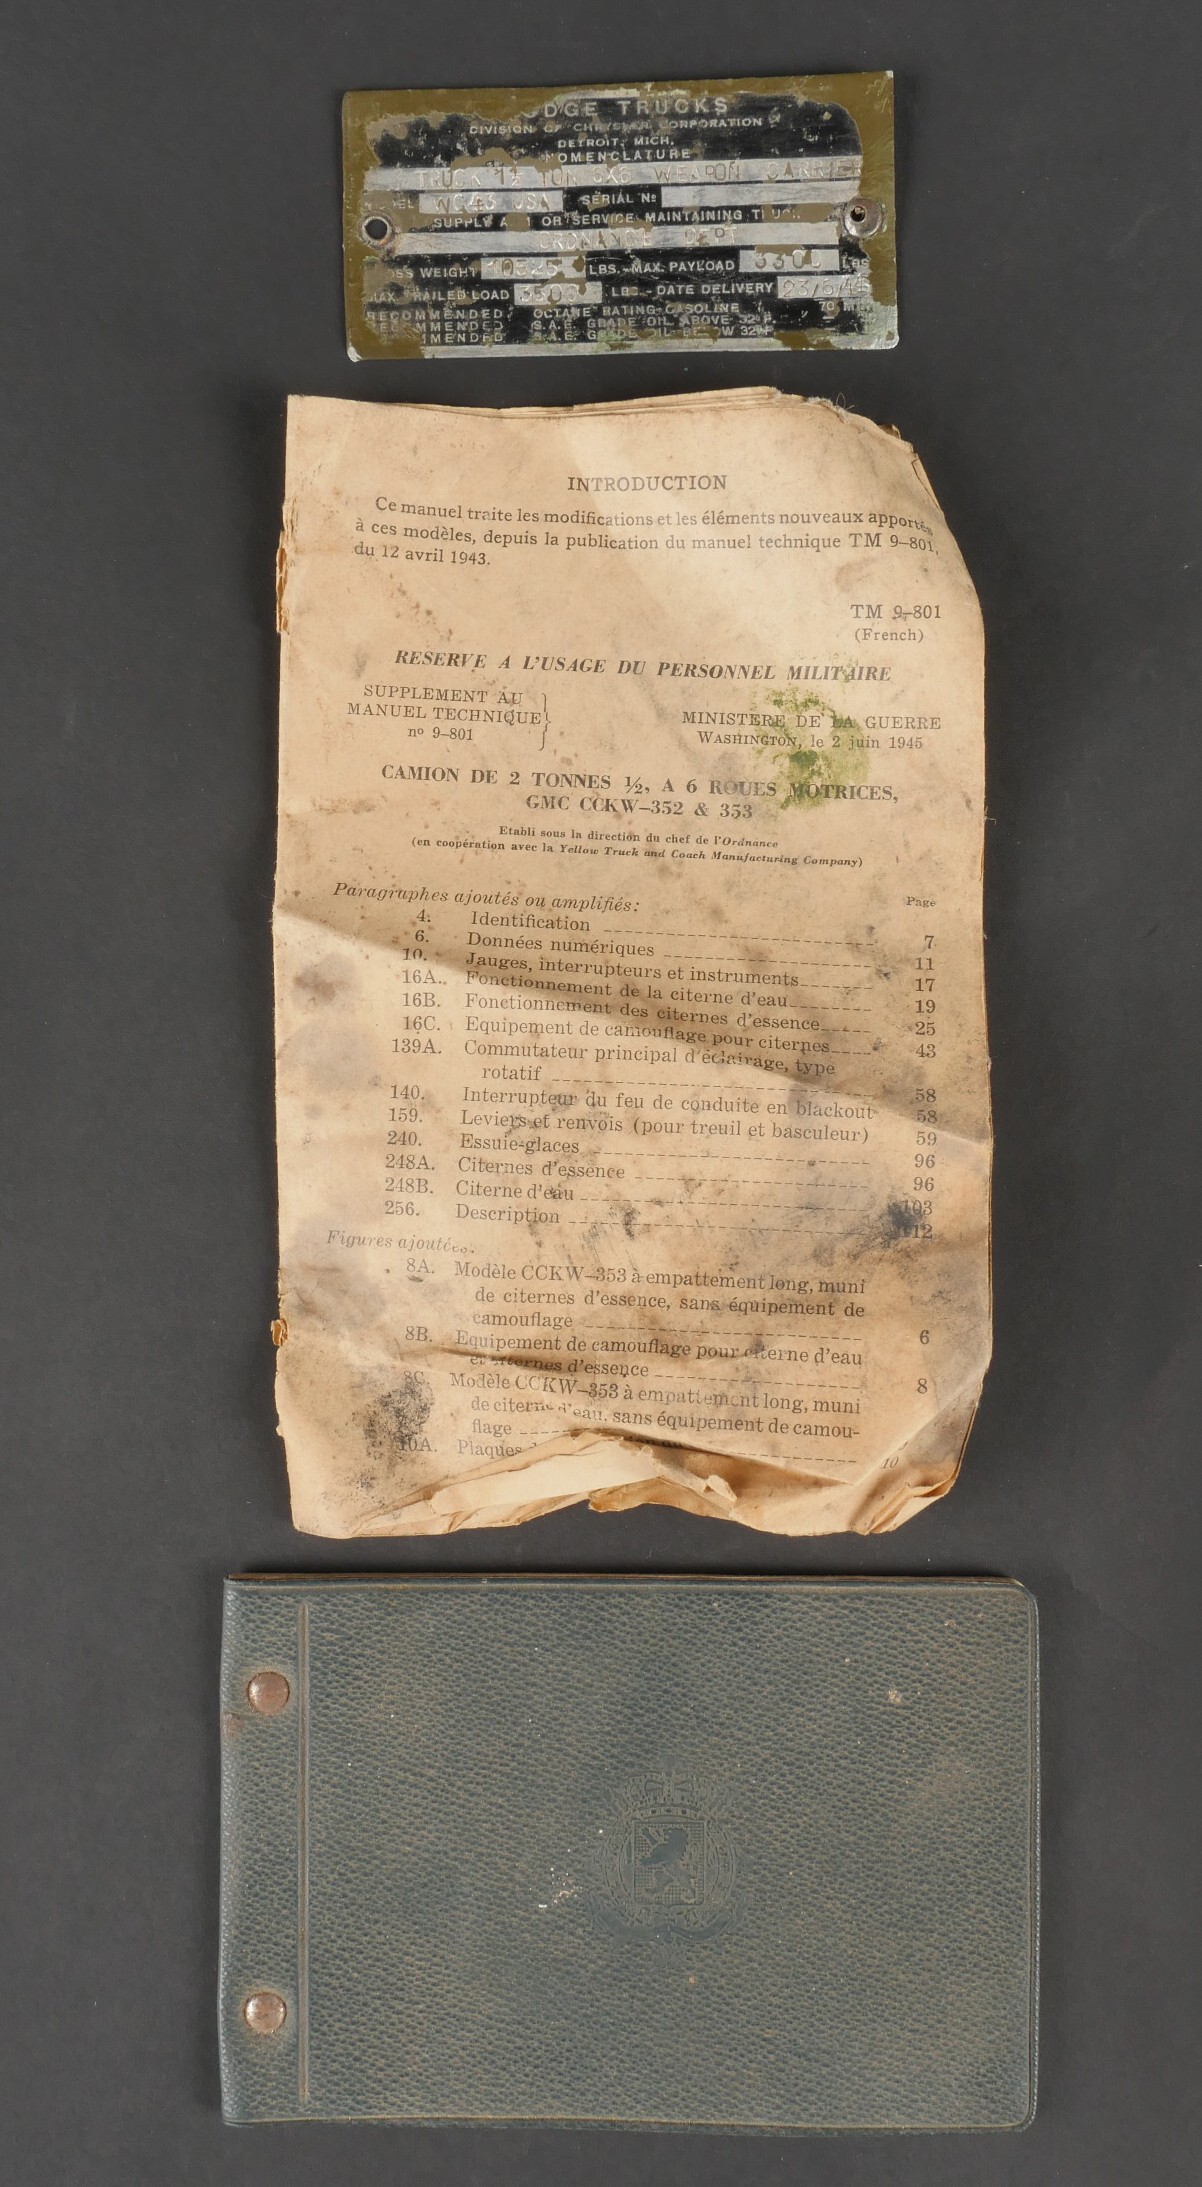 DGE TRUCKS
DIVISION OF CHRYSLER CORPORATION
DETROIT, MICH.
NOMENCLATURE
TRUCK 1½ TON 6X6 WEAPON CARRIER
USA SERIAL Nº
SUPPLY OR SERVICE MAINTAINING
ORDNANCE DEPT
WEIGHT 10525 LBS.-MAX. PAYLOAD 3300 LBS
LOAD 3500 LBS.-DATE DELIVERY
RECOMMENDED OCTANE RATING GASOLINE 70
S.A.E. GRADE OIL ABOVE 32°F.
S.A.E. GRADE OIL BELOW 32°F
INTRODUCTION
Ce manuel traite les modifications et les éléments nouveaux apportés
à ces modèles, depuis la publication du manuel technique TM 9–801,
du 12 avril 1943.
TM 9–801
(French)
RESERVE A L'USAGE DU PERSONNEL MILITAIRE
SUPPLEMENT AU
MANUEL TECHNIQUE
nº 9–801
MINISTERE DE LA GUERRE
WASHINGTON, le 2 juin 1945
CAMION DE 2 TONNES ½, A 6 ROUES MOTRICES,
GMC CCKW–352 & 353
Etabli sous la direction du chef de l'Ordnance
(en coopération avec la Yellow Truck and Coach Manufacturing Company)
Paragraphes ajoutés ou amplifiés: Page
4. Identification 7
6. Données numériques 11
10. Jauges, interrupteurs et instruments 17
16A. Fonctionnement de la citerne d'eau 19
16B. Fonctionnement des citernes d'essence 25
16C. Equipement de camouflage pour citernes 43
139A. Commutateur principal d'éclairage, type
rotatif 58
140. Interrupteur du feu de conduite en blackout 58
159. Leviers et renvois (pour treuil et basculeur) 59
240. Essuie-glaces 96
248A. Citernes d'essence 96
248B. Citerne d'eau 103
256. Description 112
Figures ajoutées.
8A. Modèle CCKW–353 à empattement long, muni
de citernes d'essence, sans équipement de
camouflage 6
8B. Equipement de camouflage pour citerne d'eau
et citernes d'essence 8
8C. Modèle CCKW–353 à empattement long, muni
de citerne d'eau, sans équipement de camou-
flage 10
10A. Plaques